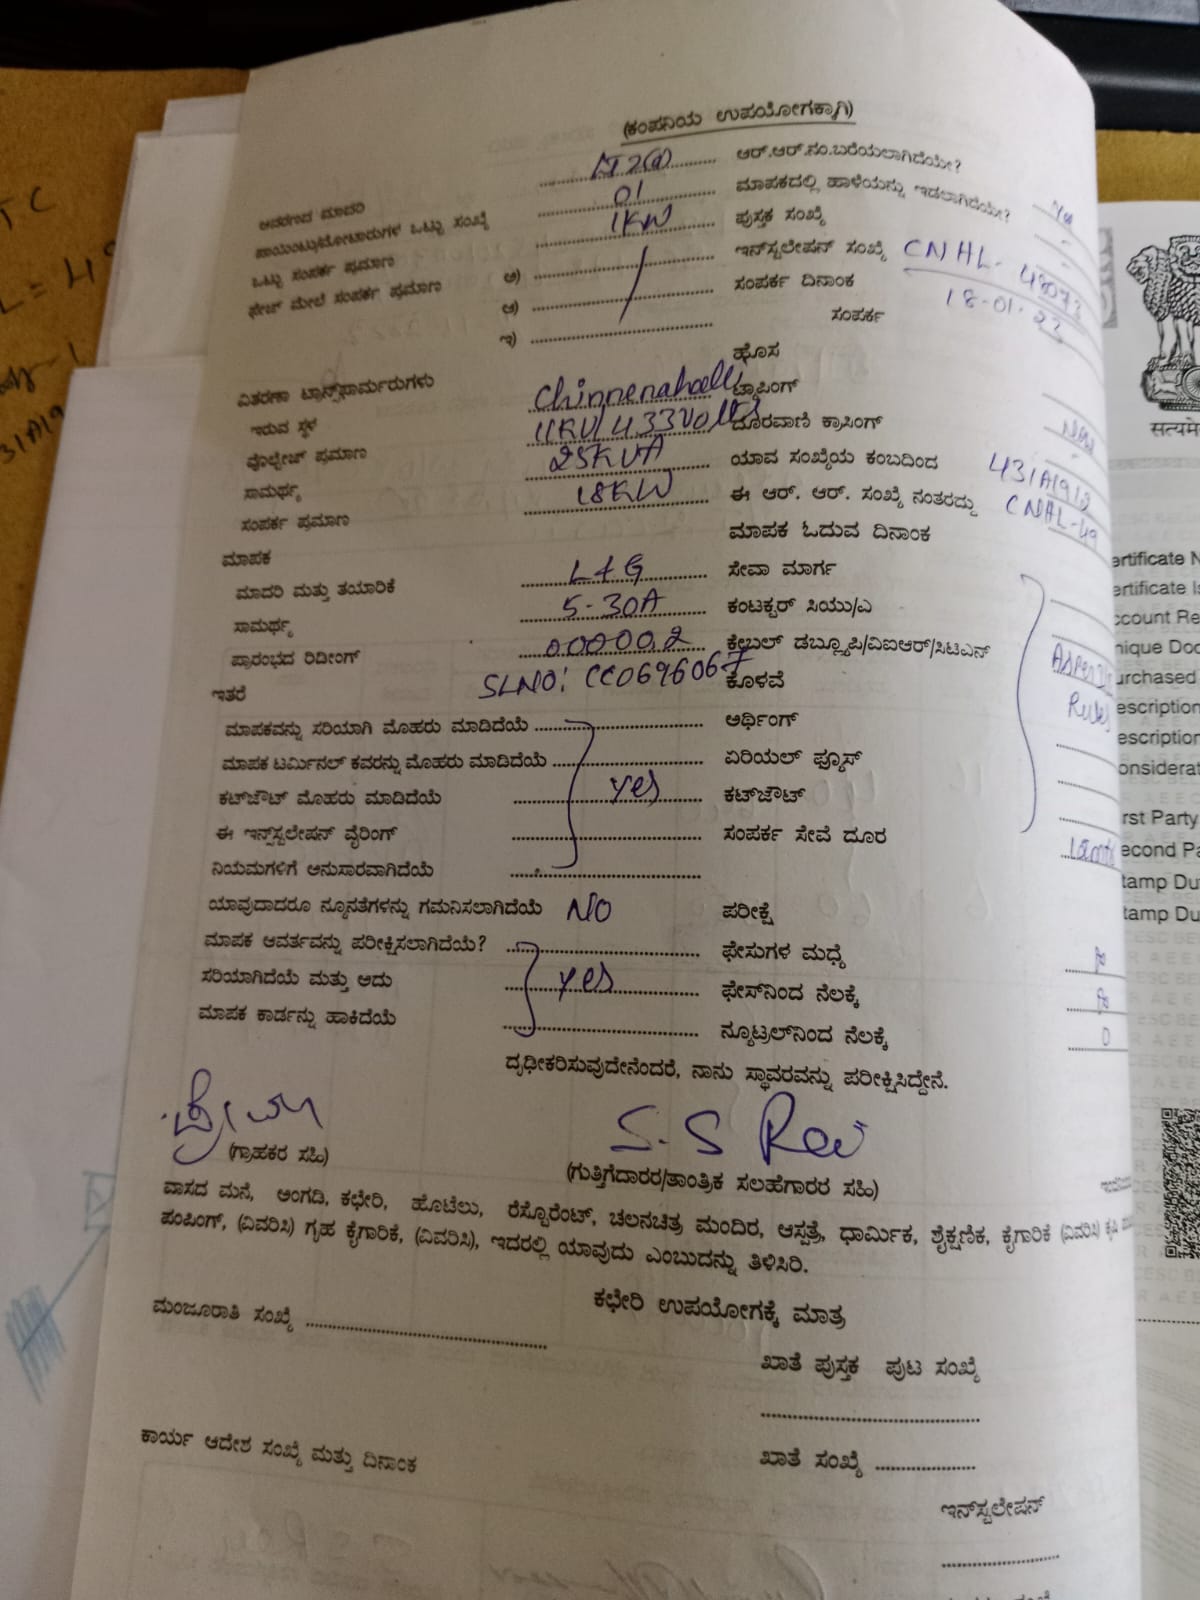 (ಕಂಪನಿಯ ಉಪಯೋಗಕ್ಕಾಗಿ)
ಆವರಣದ ಮಾದರಿ LT 2(a) ಆರ್.ಆರ್.ನಂ.ಬರೆಯಲಾಗಿದೆಯೇ? Yes
ಪಾಯಿಂಟ್ಸು/ಮೋಟಾರುಗಳ ಒಟ್ಟು ಸಂಖ್ಯೆ 01 ಮಾಪಕದಲ್ಲಿ ಹಾಳೆಯನ್ನು ಇಡಲಾಗಿದೆಯೇ? -
ಒಟ್ಟು ಸಂಪರ್ಕ ಪ್ರಮಾಣ 1KW ಪುಸ್ತಕ ಸಂಖ್ಯೆ -
ಫೇಜ್ ಮೇಲೆ ಸಂಪರ್ಕ ಪ್ರಮಾಣ ಅ) ಇನ್‌ಸ್ಟಲೇಷನ್ ಸಂಖ್ಯೆ CNHL-
ಆ) ಸಂಪರ್ಕ ದಿನಾಂಕ 18-01-
ಇ) ಸಂಪರ್ಕ
ಹೊಸ
ವಿತರಣಾ ಟ್ರಾನ್ಸ್‌ಫಾರ್ಮರುಗಳು ಟ್ಯಾಪಿಂಗ್
ಇರುವ ಸ್ಥಳ Chinnenahalli ದೂರವಾಣಿ ಕ್ರಾಸಿಂಗ್ New
ವೊಲ್ಟೇಜ್ ಪ್ರಮಾಣ 11KV/433Volts
ಸಾಮರ್ಥ್ಯ 25KVA ಯಾವ ಸಂಖ್ಯೆಯ ಕಂಬದಿಂದ 431/A/9/2
ಸಂಪರ್ಕ ಪ್ರಮಾಣ 18KW ಈ ಆರ್. ಆರ್. ಸಂಖ್ಯೆ ನಂತರದ್ದು CNHL-49
ಮಾಪಕ ಮಾಪಕ ಓದುವ ದಿನಾಂಕ
ಮಾದರಿ ಮತ್ತು ತಯಾರಿಕೆ L+G ಸೇವಾ ಮಾರ್ಗ
ಸಾಮರ್ಥ್ಯ 5-30A ಕಂಟಕ್ಟರ್ ಸಿಯು/ಎ
ಪ್ರಾರಂಭದ ರಿಡೀಂಗ್ 000002 ಕೇಬಲ್ ಡಬ್ಲ್ಯೂಪಿ/ವಿಐಆರ್/ಸಿಟಿಎನ್
ಇತರೆ SLNO: CC0696067 ಕೊಳವೆ Rules
ಮಾಪಕವನ್ನು ಸರಿಯಾಗಿ ಮೊಹರು ಮಾಡಿದೆಯೆ ಅರ್ಥಿಂಗ್
ಮಾಪಕ ಟರ್ಮಿನಲ್ ಕವರನ್ನು ಮೊಹರು ಮಾಡಿದೆಯೆ ಏರಿಯಲ್ ಫ್ಯೂಸ್
ಕಟ್‌ಔಟ್ ಮೊಹರು ಮಾಡಿದೆಯೆ yes ಕಟ್‌ಔಟ್
ಈ ಇನ್ಸ್‌ಸ್ಟಲೇಷನ್ ವೈರಿಂಗ್ ಸಂಪರ್ಕ ಸೇವೆ ದೂರ
ನಿಯಮಗಳಿಗೆ ಅನುಸಾರವಾಗಿದೆಯೆ
ಯಾವುದಾದರೂ ನ್ಯೂನತೆಗಳನ್ನು ಗಮನಿಸಲಾಗಿದೆಯೆ NO ಪರೀಕ್ಷೆ
ಮಾಪಕ ಆವರ್ತವನ್ನು ಪರೀಕ್ಷಿಸಲಾಗಿದೆಯೆ? ಫೇಸುಗಳ ಮಧ್ಯೆ
ಸರಿಯಾಗಿದೆಯೆ ಮತ್ತು ಅದು yes ಫೇಸ್‌ನಿಂದ ನೆಲಕ್ಕೆ
ಮಾಪಕ ಕಾರ್ಡನ್ನು ಹಾಕಿದೆಯೆ ನ್ಯೂಟ್ರಲ್‌ನಿಂದ ನೆಲಕ್ಕೆ 0
ದೃಢೀಕರಿಸುವುದೇನೆಂದರೆ, ನಾನು ಸ್ಥಾವರವನ್ನು ಪರೀಕ್ಷಿಸಿದ್ದೇನೆ.
S. S Ravi
(ಗ್ರಾಹಕರ ಸಹಿ) (ಗುತ್ತಿಗೆದಾರರ/ತಾಂತ್ರಿಕ ಸಲಹೆಗಾರರ ಸಹಿ)
ವಾಸದ ಮನೆ, ಅಂಗಡಿ, ಕಛೇರಿ, ಹೊಟೆಲು, ರೆಸ್ಟೋರೆಂಟ್, ಚಲನಚಿತ್ರ ಮಂದಿರ, ಆಸ್ಪತ್ರೆ, ಧಾರ್ಮಿಕ, ಶೈಕ್ಷಣಿಕ, ಕೈಗಾರಿಕೆ (ವಿವರಿಸಿ) ಕೃಷಿ
ಪಂಪಿಂಗ್, (ವಿವರಿಸಿ) ಗೃಹ ಕೈಗಾರಿಕೆ, (ವಿವರಿಸಿ), ಇದರಲ್ಲಿ ಯಾವುದು ಎಂಬುದನ್ನು ತಿಳಿಸಿರಿ.
ಕಛೇರಿ ಉಪಯೋಗಕ್ಕೆ ಮಾತ್ರ
ಮಂಜೂರಾತಿ ಸಂಖ್ಯೆ
ಖಾತೆ ಪುಸ್ತಕ ಪುಟ ಸಂಖ್ಯೆ
ಕಾರ್ಯ ಆದೇಶ ಸಂಖ್ಯೆ ಮತ್ತು ದಿನಾಂಕ ಖಾತೆ ಸಂಖ್ಯೆ
ಇನ್‌ಸ್ಟಲೇಷನ್
सत्यमे
ertificate N
ertificate Is
ccount Re
nique Doc
urchased
escription
escription
onsiderat
rst Party
econd Pa
tamp Du
tamp Du